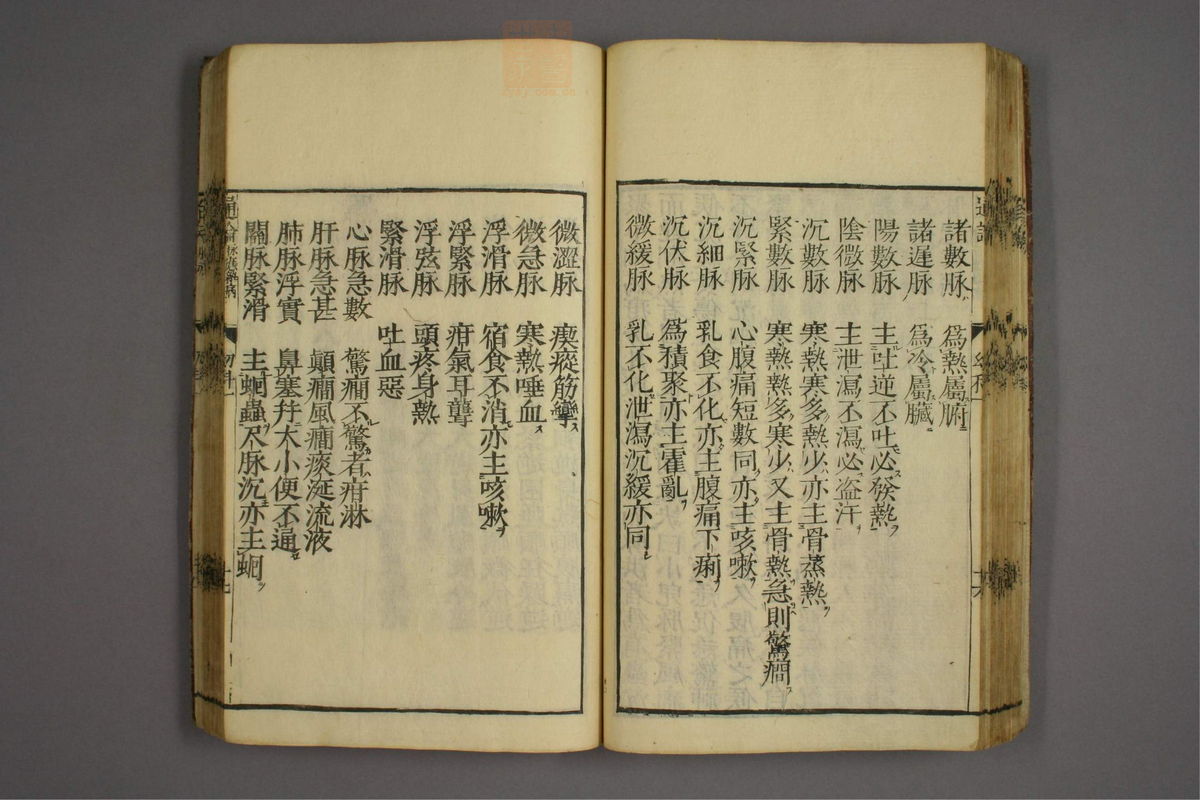 諸數脉 爲熱屬腑
諸遲脉 爲冷屬臟
陽數脉 主吐逆不吐必發熱
陰微脉 主泄瀉不瀉必盗汗
沉數脉 寒熱寒多熱少亦主骨蒸熱
緊數脉 寒熱熱多寒少又主骨熱急則驚癇
沉緊脉 心腹痛短數同亦主咳嗽
沉細脉 乳食不化亦主腹痛下痢
沉伏脉 爲積聚亦主霍亂
微緩脉 乳不化泄瀉沉緩亦同
微澀脉 瘈瘲筋攣
微急脉 寒熱唾血
浮滑脉 宿食不消亦主咳嗽
浮緊脉 疳氣耳聾
浮弦脉 頭疼身熱
緊滑脉 吐血惡
心脉急數 驚癇不驚者疳淋
肝脉急甚 癲癇風癇痰涎流液
肺脉浮實 鼻塞并大小便不通
關脉緊滑 主蛔蟲尺脉沉亦主蛔